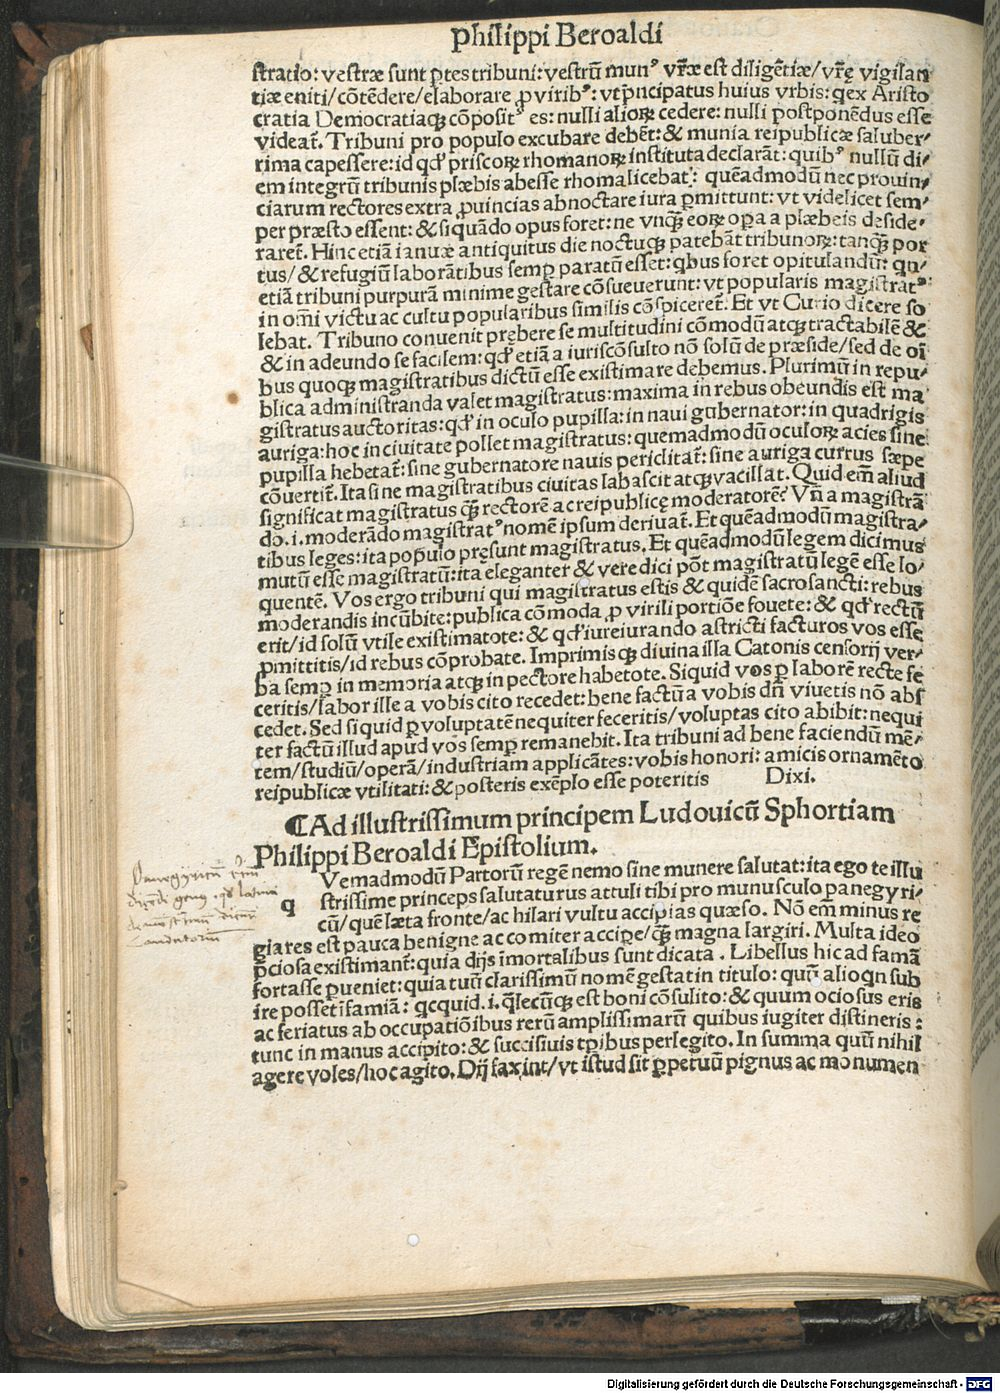 Philippi Beroaldi
stratio: vestræ sunt ꝑtes tribuni: vestrū munꝰ vr̄æ est diligētiæ/ vr̄ę vigilan
tiæ eniti/ cōtēdere/ elaborare ꝓ viribꝰ: vt p̄ncipatus huius vrbis: q̄ ex Aristo
cratia Democratiaqꝫ cōpositꝰ es: nulli alioꝝ cedere: nulli postponēdus esse
videat̄. Tribuni pro populo excubare debēt: & munia reipublicæ saluber⸗
rima capessere: id qd̄ priscoꝝ rhomanoꝝ instituta declarāt: quibꝰ nullū di⸗
em integrū tribunis plæbis abesse rhoma licebat: quēadmodū nec prouin⸗
ciarum rectores extra ꝓuincias abnoctare iura ꝑmittunt: vt videlicet sem⸗
per præsto essent: & siquādo opus foret: ne vnqꝫ̄ eoꝝ oꝑa a plæbeis deside⸗
raret̄. Hinc etiā ianuæ antiquitus die noctuqꝫ patebāt tribunoꝝ: tanqꝫ̄ por
tus/ & refugiū laborātibus semꝑ paratū esset: qbus foret opitulandū: qn⸗
etiā tribuni purpurā minime gestare cōsueuerunt: vt popularis magistratꝰ:
in om̄i victu ac cultu popularibus similis cōspiceret̄. Et vt Curio dicere so
lebat. Tribuno conuenit prębere se multitudini cōmodū atqꝫ tractabilē &
& in adeundo se facilem: qd̄ etiā a iuriscōsulto nō solū de præside/ sed de oī
bus quoqꝫ magistratibus dictū esse existimare debemus. Plurimū in repu⸗
blica administranda valet magistratus: maxima in rebus obeundis est ma
gistratus auctoritas: qd̄ in oculo pupilla: in naui gubernator: in quadrigis
auriga: hoc in ciuitate pollet magistratus: quemadmodū oculoꝝ acies sine
pupilla hebetat̄: sine gubernatore nauis periclitat̄: sine auriga currus sæpe
cōuertit̄. Ita sine magistratibus ciuitas labascit atqꝫ vacillat. Quid em̄ aliud
significat magistratus qꝫ̄ rectorē ac reipublicę moderatorē? Vn̄ a magistrā
do .i. moderādo magistratꝰ nomē ipsum deriuat̄. Et quēadmodū magistra⸗
tibus leges: ita populo pręsunt magistratus. Et quēadmodū legem dicimus
mutū esse magistratū: ita eleganter & vere dici pōt magistratū legē esse lo⸗
quentē. Vos ergo tribuni qui magistratus estis & quidē sacrosancti: rebus
moderandis incūbite: publica cōmoda ꝓ virili portiōe fouete: & qd̄ rectū
erit/ id solū vtile existimatote: & qd̄ iureiurando astricti facturos vos esse
ꝑmittitis/ id rebus cōprobate. Imprimisqꝫ diuina illa Catonis censorij ver⸗
ba semꝑ in memoria atqꝫ in pectore habetote. Siquid vos ꝑ laborē recte fe
ceritis/ labor ille a vobis cito recedet: bene factū a vobis dn̄ viuetis nō abs
cedet. Sed si quid ꝑ voluptatē nequiter feceritis/ voluptas cito abibit: nequi
ter factū illud apud vos semꝑ remanebit. Ita tribuni ad bene faciendū mē⸗
tem/ studiū/ operā/ industriam applicātes: vobis honori: amicis ornamēto
reipublicæ vtilitati: & posteris exēplo esse poteritis Dixi.
⸿Ad illustrissimum principem Ludouicū Sphortiam
Philippi Beroaldi Epistolium.
q Vemadmodū Partorū regē nemo sine munere salutat: ita ego te illu
strissime princeps salutaturus attuli tibi pro munusculo panegyri⸗
cū/ quē læta fronte/ ac hilari vultu accipias quæso. Nō em̄ minus re
gia res est pauca benigne ac comiter accipe/ qꝫ̄ magna largiri. Multa ideo
p̄ciosa existimant̄: quia dijs īmortalibus sunt dicata. Libellus hic ad famā
fortasse ꝑueniet: quia tuū clarissimū nomē gestat in titulo: quū alioqn sub
ire posset īfamiā: qcquid .i. qlecūqꝫ est boni cōsulito: & quum ociosus eris
ac feriatus ab occupatiōibus rerū amplissimarū quibus iugiter distineris:
tunc in manus accipito: & succisiuis tp̄ibus perlegito. In summa quū nihil
agere voles/ hoc agito. Dij faxint/ vt istud sit ꝑpetuū pignus ac monumen
Digitalisierung gefördert durch die Deutsche Forschungsgemeinschaft - DFG